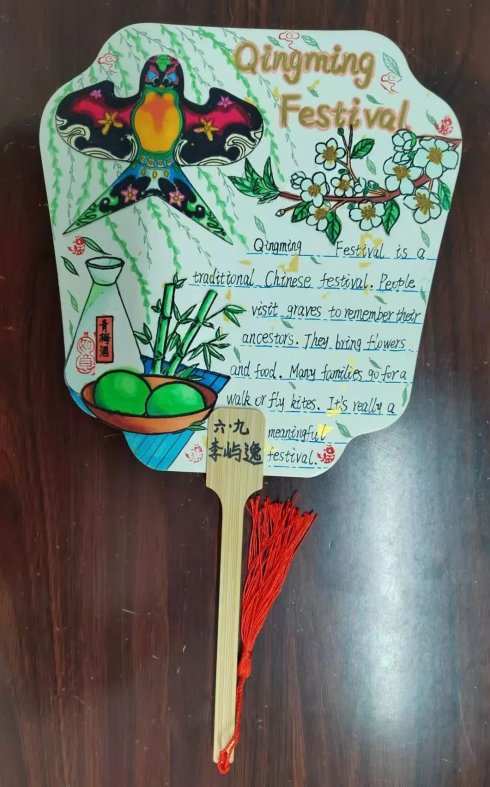 Qingming
Festival
Qingming Festival is a
traditional Chinese festival. People
visit graves to remember their
ancestors. They bring flowers
and food. Many families go for a
walk or fly kites. It's really a
meaningful
festival.
青梅酒
六·九
李屿逸